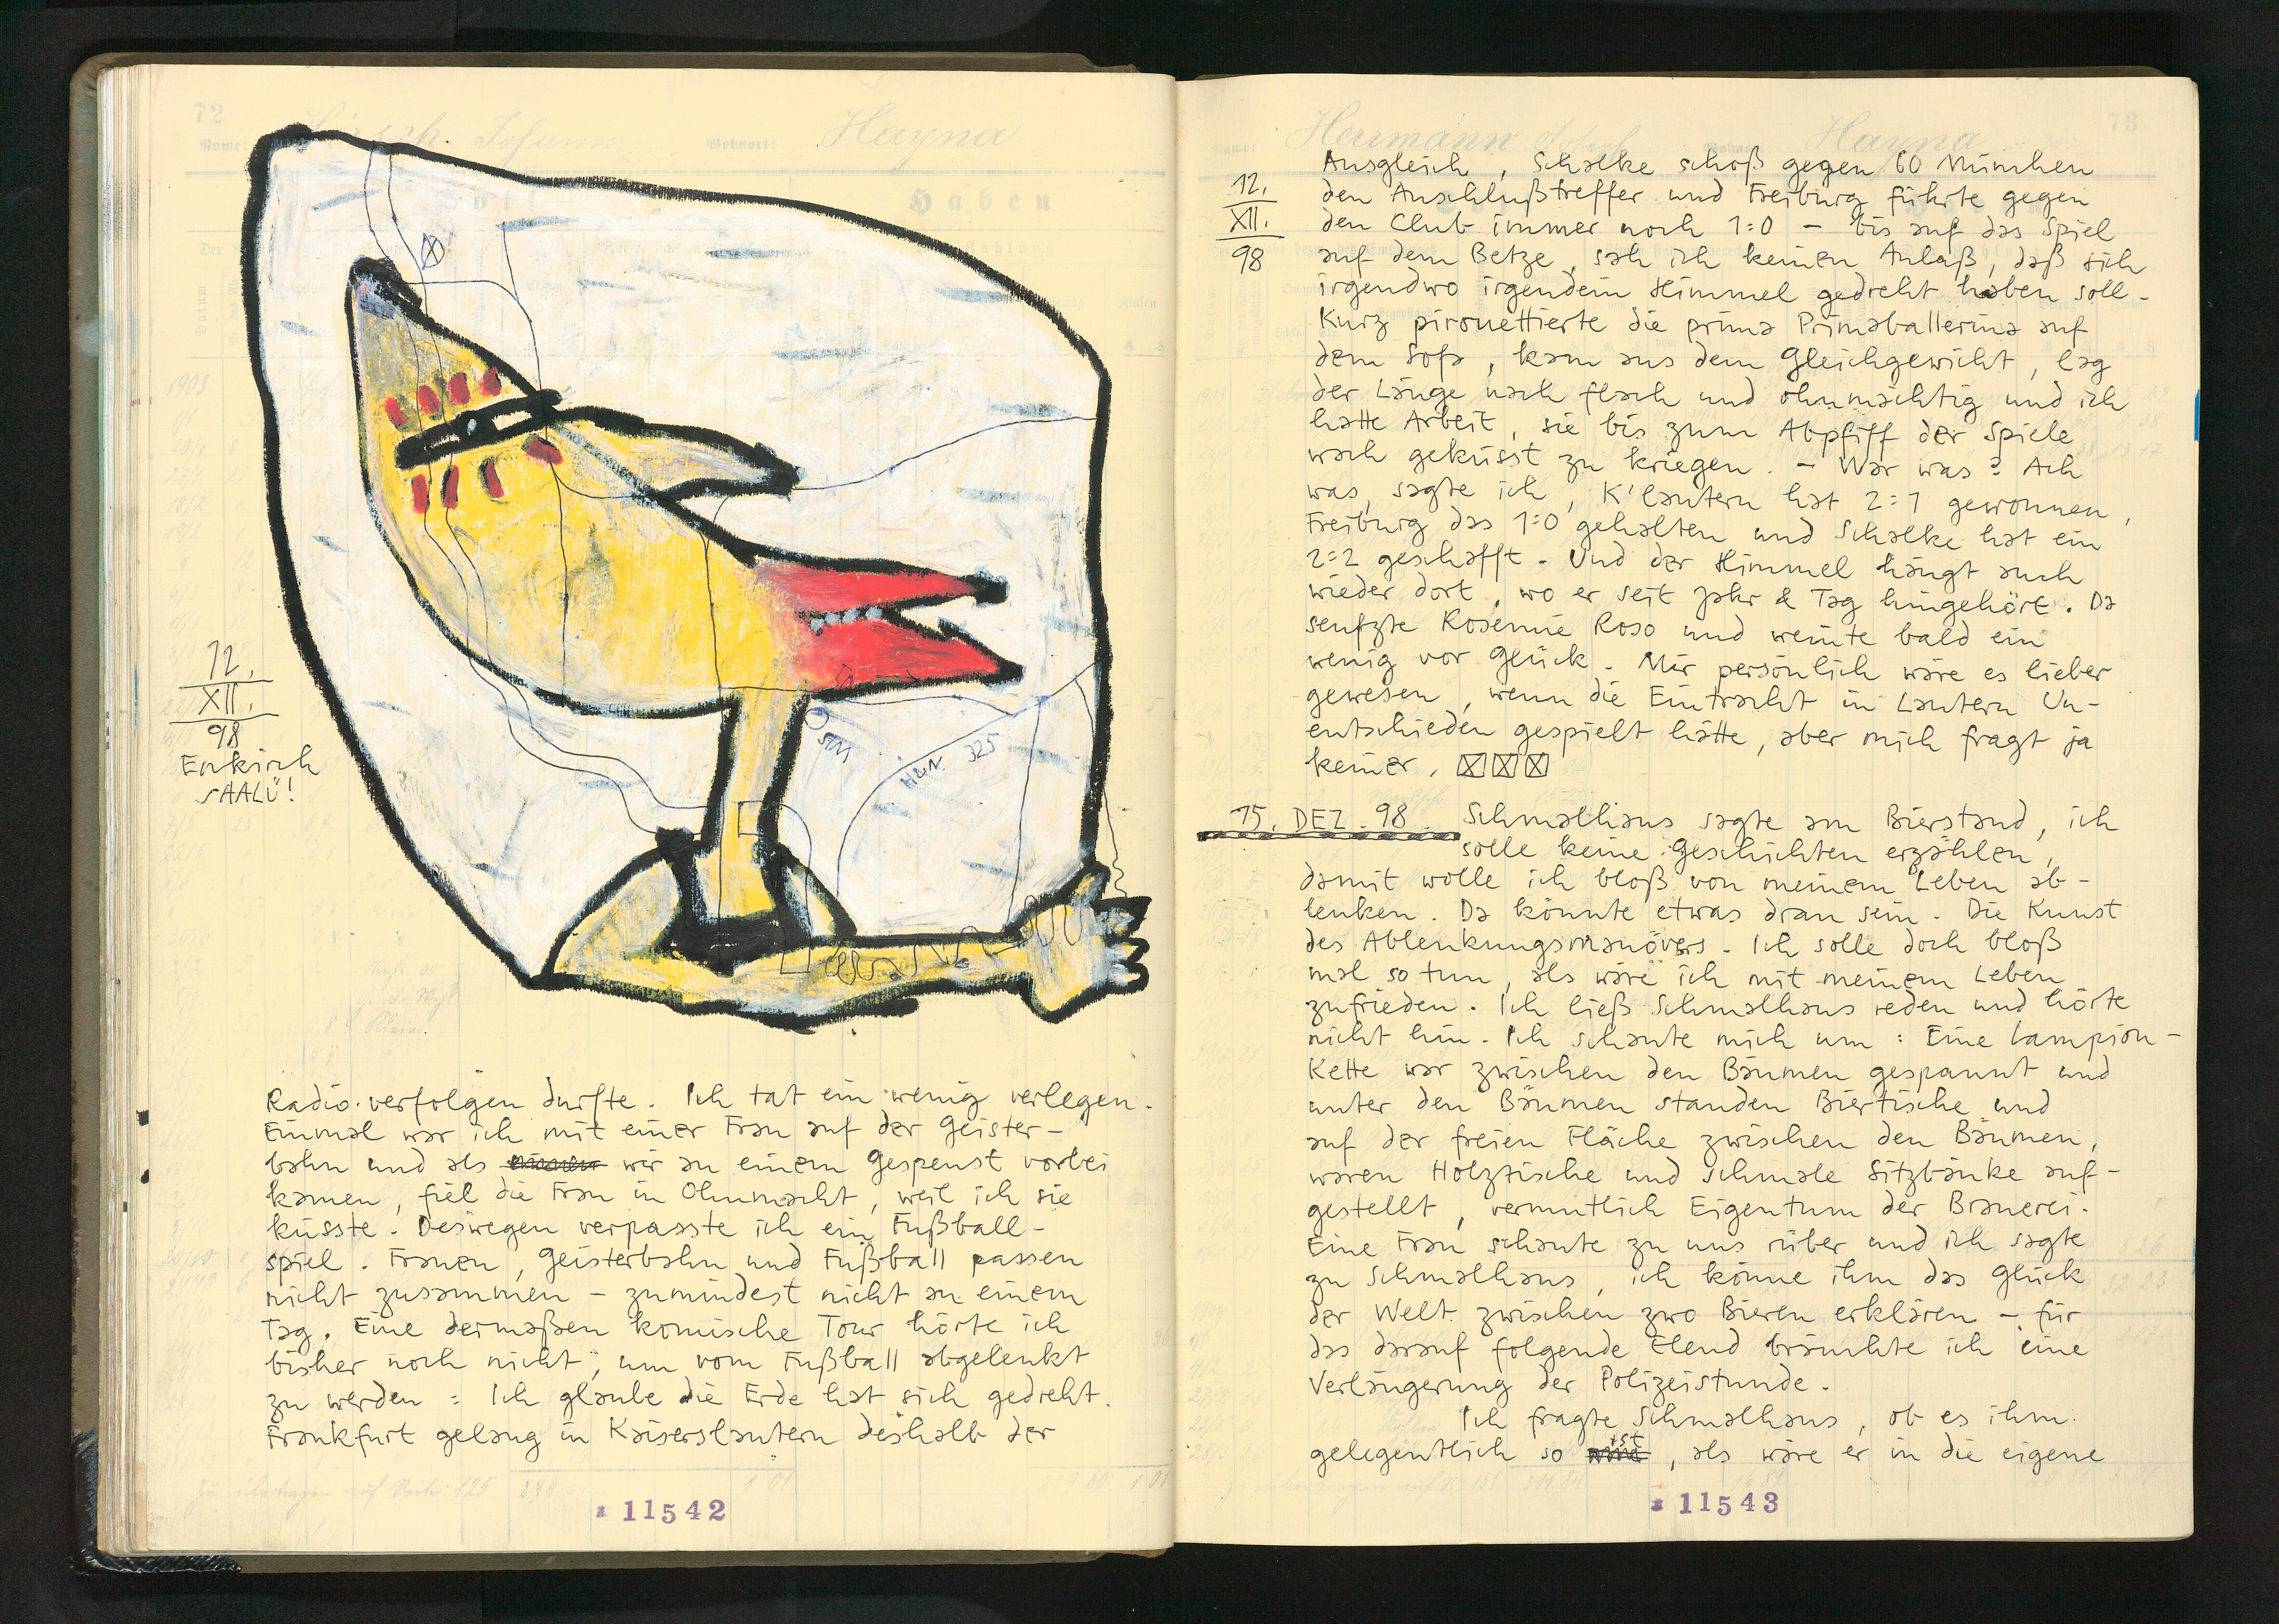 72
Name:
Hirsch. Johann
Wohnort:
Hayna
Haben
1903
12.
XII.
98
Enkirch
sAALÜ!
HUN. 325
Radio verfolgen durfte. Ich tat ein wenig verlegen.
Einmal war ich mit einer Frau auf der Geister-
bahn und als wir an einem Gespenst vorbei
kamen, fiel die Frau in Ohnmacht, weil ich sie
küsste. Deswegen verpasste ich ein Fußball-
spiel. Frauen, Geisterbahn und Fußball passen
nicht zusammen - zumindest nicht an einem
Tag. Eine dermaßen komische Tour hörte ich
bisher noch nicht, um vom Fußball abgelenkt
zu werden: Ich glaube die Erde hat sich gedreht.
Frankfurt gelang in Kaiserslautern deshalb der
zu übertragen auf Seite: 125
11542
73
Herrmann Jakob
Hayna
12.
XII.
98
Ausgleich, Schalke schoß gegen 60 München
den Anschlußtreffer und Freiburg führte gegen
den Club immer noch 1:0 - bis auf das Spiel
auf dem Betze, sah ich keinen Anlaß, daß sich
irgendwo irgendein Himmel gedreht haben soll.
Kurz pirouettierte die prima Primaballerina auf
dem Sofa, kam aus dem Gleichgewicht, lag
der Länge nach flach und ohnmächtig und ich
hatte Arbeit, sie bis zum Abpfiff der Spiele
wach geküsst zu kriegen. - War was? Ach
was, sagte ich, K'lautern hat 2:1 gewonnen,
Freiburg das 1:0 gehalten und Schalke hat ein
2:2 geschafft. Und der Himmel hängt auch
wieder dort, wo er seit Jahr & Tag hingehört. Da
seufzte Rosemie Roso und weinte bald ein
wenig vor Glück. Mir persönlich wäre es lieber
gewesen, wenn die Eintracht in Lautern Un-
entschieden gespielt hätte, aber mich fragt ja
keiner.
15. DEZ. 98 Schmalhaus sagte am Bierstand, ich
solle keine Geschichten erzählen,
damit wolle ich bloß von meinem Leben ab-
lenken. Da könnte etwas dran sein. Die Kunst
des Ablenkungsmanövers. Ich solle doch bloß
mal so tun, als wäre ich mit meinem Leben
zufrieden. Ich ließ Schmalhaus reden und hörte
nicht hin. Ich schaute mich um: Eine Lampion-
Kette war zwischen den Bäumen gespannt und
unter den Bäumen standen Biertische und
auf der freien Fläche zwischen den Bäumen,
waren Holztische und schmale Sitzbänke auf-
gestellt, vermutlich Eigentum der Brauerei.
Eine Frau schaute zu uns rüber und ich sagte
zu Schmalhaus, ich könne ihm das Glück
der Welt zwischen zwo Bieren erklären - für
das darauf folgende Elend bräuchte ich eine
Verlängerung der Polizeistunde.
Ich fragte Schmalhaus, ob es ihm
gelegentlich so ist, als wäre er in die eigene
11543